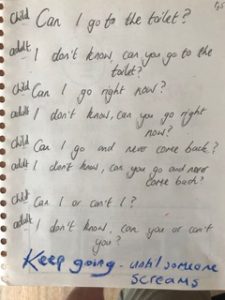 child Can I go to the toilet?
adult I don't know, can you go to the
toilet?
child Can I go right now?
adult I don't know, can you go right
now?
child Can I go and never come back?
adult I don't know, can you go and never
come back?
child Can I or can't I?
adult I don't know, can you or can't
you?
Keep going - until someone
screams